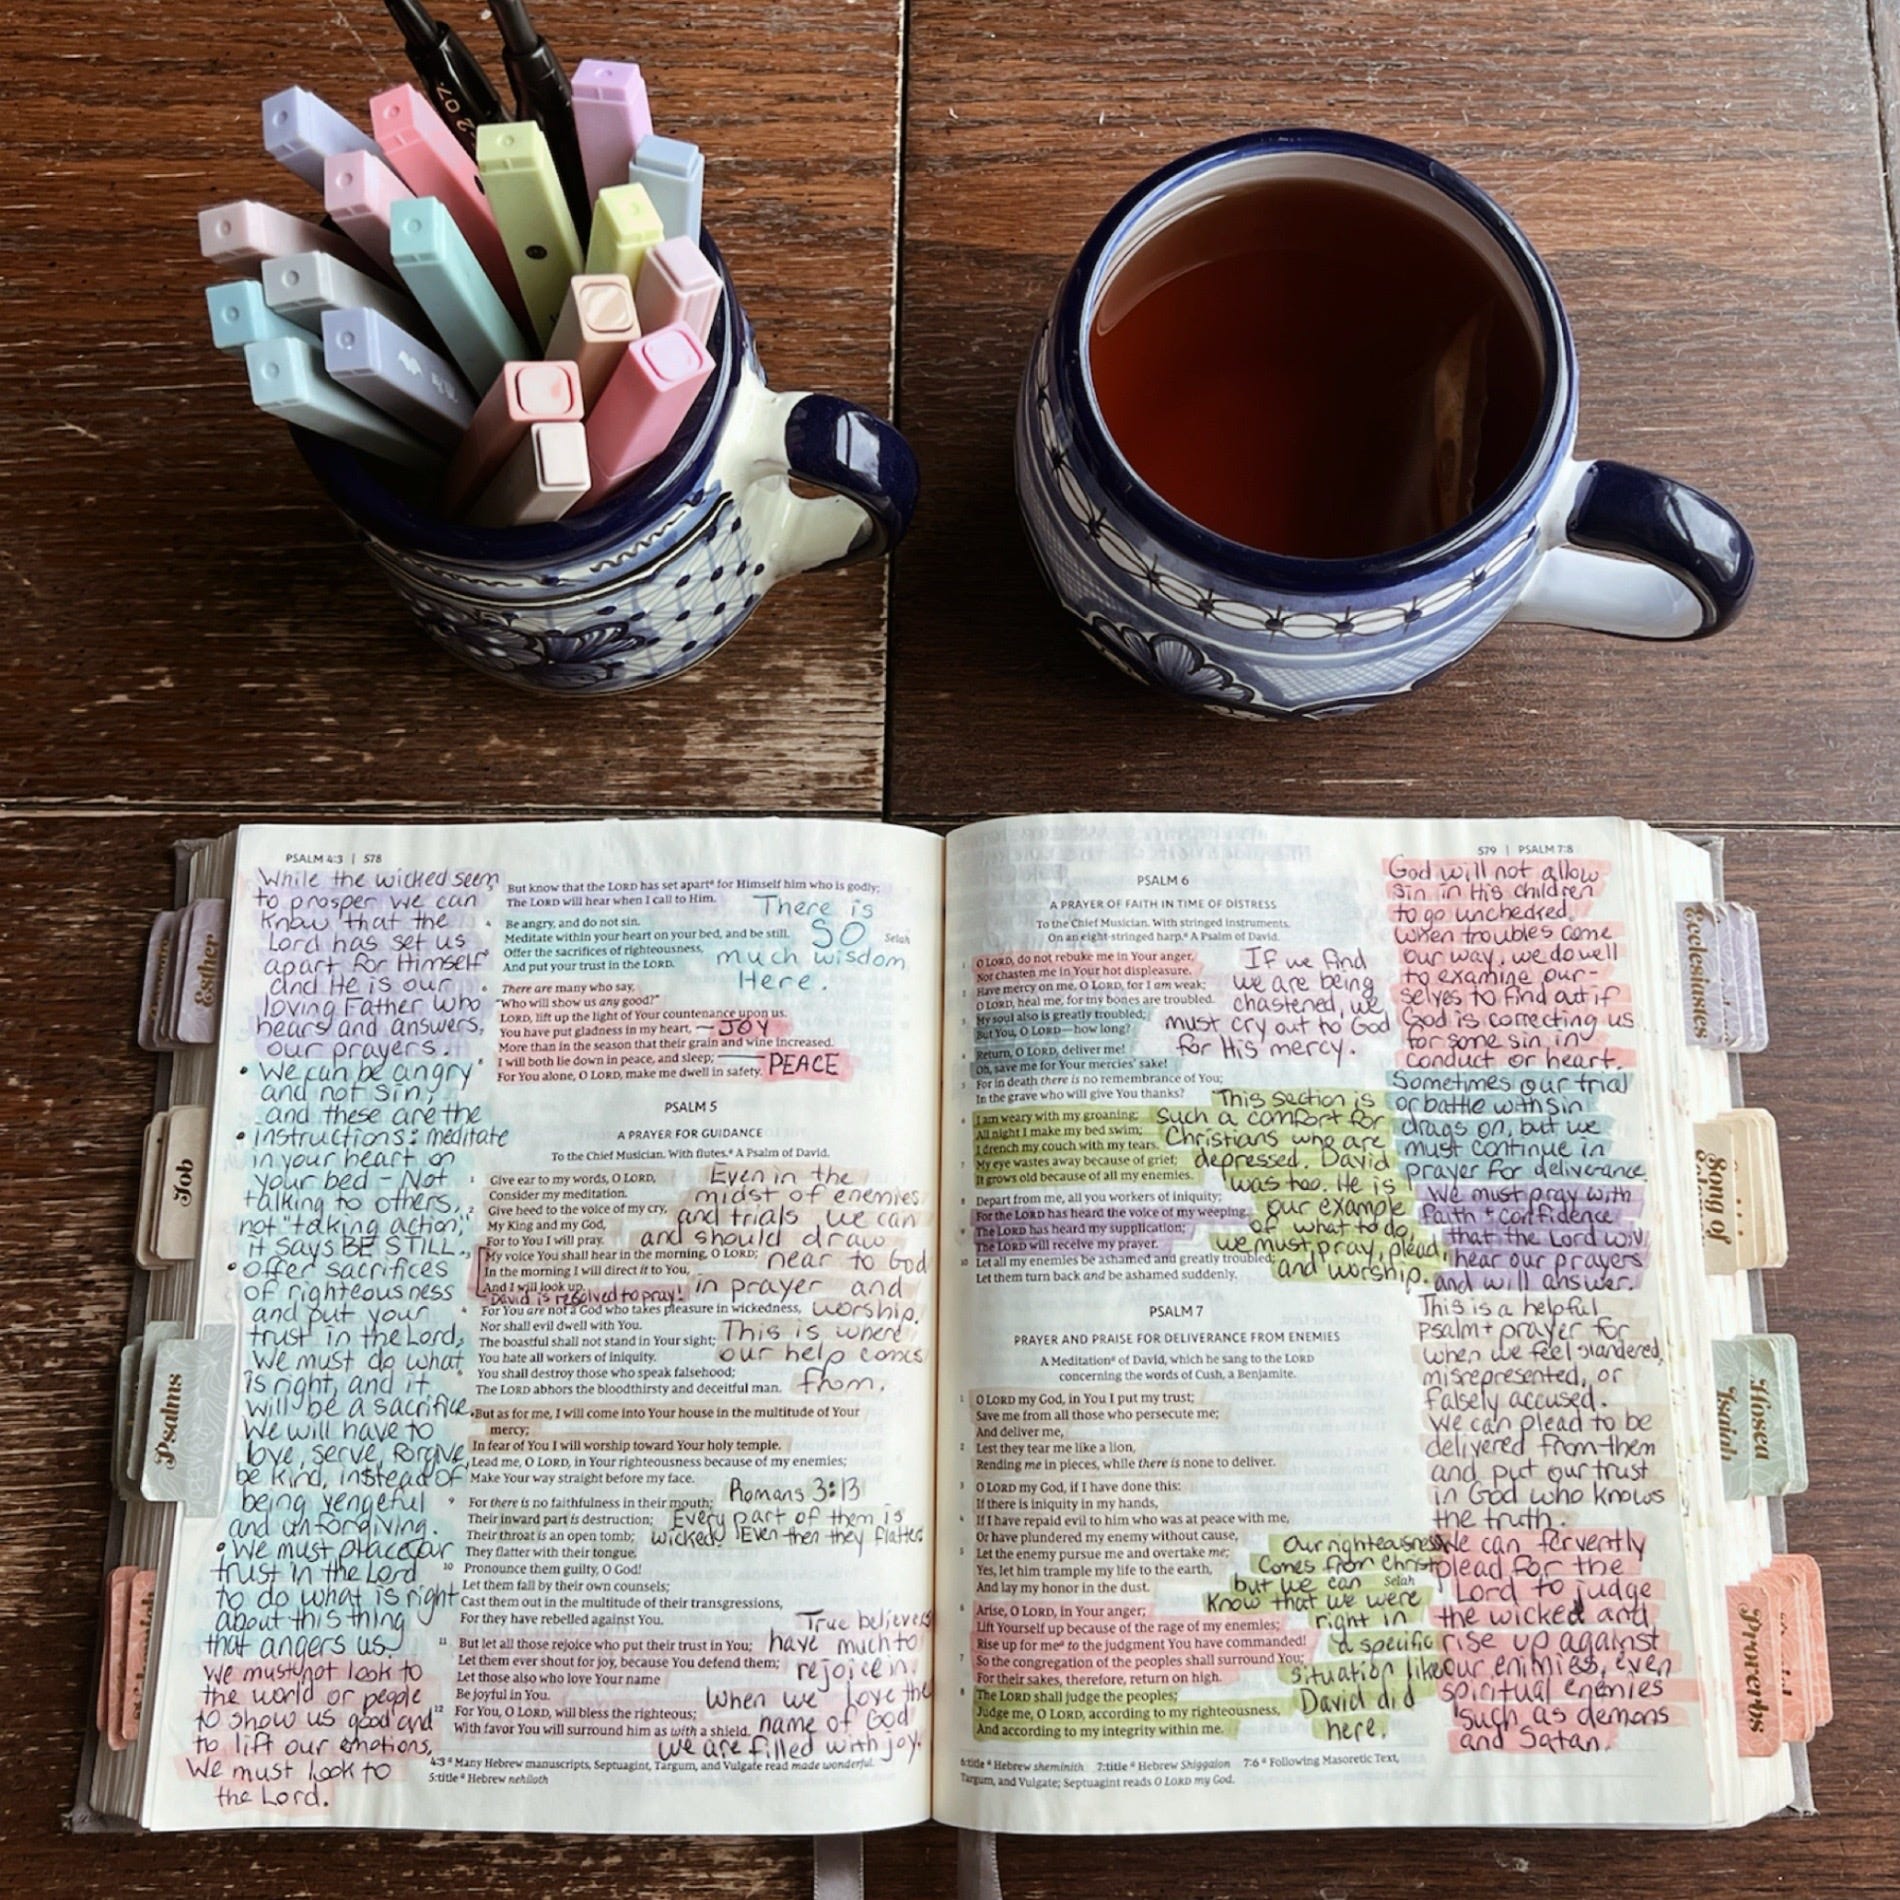 PSALM 4:3 | 578
While the wicked seem
to prosper we can
know that the
Lord has set us
apart for Himself
and He is our
loving Father who
hears and answers,
our prayers.
• We can be angry
and not sin,
and these are the
• instructions: meditate
in your heart on
your bed - Not
talking to others,
not "taking action,"
it says BE STILL.
• offer sacrifices
of righteousness
and put your
trust in the Lord,
We must do what
is right, and it
will be a sacrifice.
We will have to
love, serve, forgive,
be kind, instead of
being vengeful
and unforgiving.
• We must place our
trust in the Lord
to do what is right
about this thing
that angers us.
We must not look to
the world or people
to show us good and
to lift our emotions,
We must look to
the Lord.
But know that the LORD has set apart a for Himself him who is godly;
The LORD will hear when I call to Him.
4 Be angry, and do not sin.
Meditate within your heart on your bed, and be still. Selah
Offer the sacrifices of righteousness,
And put your trust in the LORD.
There is
SO
much wisdom
Here.
6 There are many who say,
"Who will show us any good?"
LORD, lift up the light of Your countenance upon us.
You have put gladness in my heart, — JOY
More than in the season that their grain and wine increased.
8 I will both lie down in peace, and sleep; — PEACE
For You alone, O LORD, make me dwell in safety.
PSALM 5
A PRAYER FOR GUIDANCE
To the Chief Musician. With flutes. a A Psalm of David.
1 Give ear to my words, O LORD,
Consider my meditation.
2 Give heed to the voice of my cry,
My King and my God,
For to You I will pray.
3 My voice You shall hear in the morning, O LORD;
In the morning I will direct it to You,
And I will look up.
David is resolved to pray!
Even in the
midst of enemies
and trials we can
and should draw
near to God
in prayer and
worship.
This is where
our help comes
from.
4 For You are not a God who takes pleasure in wickedness,
Nor shall evil dwell with You.
The boastful shall not stand in Your sight;
You hate all workers of iniquity.
6 You shall destroy those who speak falsehood;
The LORD abhors the bloodthirsty and deceitful man.
But as for me, I will come into Your house in the multitude of Your
mercy;
In fear of You I will worship toward Your holy temple.
Lead me, O LORD, in Your righteousness because of my enemies;
Make Your way straight before my face.
9 For there is no faithfulness in their mouth;
Their inward part is destruction;
Their throat is an open tomb;
They flatter with their tongue.
Romans 3:13
Every part of them is
wicked. Even then they flatter
10 Pronounce them guilty, O God!
Let them fall by their own counsels;
Cast them out in the multitude of their transgressions,
For they have rebelled against You.
11 But let all those rejoice who put their trust in You;
Let them ever shout for joy, because You defend them;
Let those also who love Your name
Be joyful in You.
12 For You, O LORD, will bless the righteous;
With favor You will surround him as with a shield.
True believers
have much to
rejoice in.
When we love the
name of God
we are filled with joy.
4:3 a Many Hebrew manuscripts, Septuagint, Targum, and Vulgate read made wonderful.
5:title a Hebrew nehiloth
579 | PSALM 7:8
PSALM 6
A PRAYER OF FAITH IN TIME OF DISTRESS
To the Chief Musician. With stringed instruments.
On an eight-stringed harp. a A Psalm of David.
1 O LORD, do not rebuke me in Your anger,
Nor chasten me in Your hot displeasure.
2 Have mercy on me, O LORD, for I am weak;
O LORD, heal me, for my bones are troubled.
3 My soul also is greatly troubled;
But You, O LORD—how long?
4 Return, O LORD, deliver me!
Oh, save me for Your mercies' sake!
5 For in death there is no remembrance of You;
In the grave who will give You thanks?
If we find
we are being
chastened, we
must cry out to God
for His mercy.
6 I am weary with my groaning;
All night I make my bed swim;
I drench my couch with my tears.
7 My eye wastes away because of grief;
It grows old because of all my enemies.
8 Depart from me, all you workers of iniquity;
For the LORD has heard the voice of my weeping.
9 The LORD has heard my supplication;
The LORD will receive my prayer.
10 Let all my enemies be ashamed and greatly troubled;
Let them turn back and be ashamed suddenly.
This section is
such a comfort for
Christians who are
depressed. David
was too. He is
our example
of what to do,
we must pray, plead,
and worship.
PSALM 7
PRAYER AND PRAISE FOR DELIVERANCE FROM ENEMIES
A Meditation a of David, which he sang to the LORD
concerning the words of Cush, a Benjamite.
1 O LORD my God, in You I put my trust;
Save me from all those who persecute me;
And deliver me,
2 Lest they tear me like a lion,
Rending me in pieces, while there is none to deliver.
3 O LORD my God, if I have done this:
If there is iniquity in my hands,
4 If I have repaid evil to him who was at peace with me,
Or have plundered my enemy without cause,
5 Let the enemy pursue me and overtake me;
Yes, let him trample my life to the earth,
And lay my honor in the dust. Selah
6 Arise, O LORD, in Your anger;
Lift Yourself up because of the rage of my enemies;
Rise up for me a to the judgment You have commanded!
7 So the congregation of the peoples shall surround You;
For their sakes, therefore, return on high.
8 The LORD shall judge the peoples;
Judge me, O LORD, according to my righteousness,
And according to my integrity within me.
Our righteousness
comes from Christ
but we can
know that we were
right in
a specific
situation like
David did
here.
6:title a Hebrew sheminith 7:title a Hebrew Shiggaion 7:6 a Following Masoretic Text,
Targum, and Vulgate; Septuagint reads O LORD my God.
God will not allow
sin in His children
to go unchecked.
When troubles come
our way, we do well
to examine our-
selves to find out if
God is correcting us
for some sin in
conduct or heart.
Sometimes our trial
or battle with sin
drags on, but we
must continue in
prayer for deliverance.
We must pray with
faith + confidence
that the Lord will
hear our prayers
and will answer.
This is a helpful
psalm + prayer for
when we feel slandered,
misrepresented, or
falsely accused.
We can plead to be
delivered from them
and put our trust
in God who knows
the truth.
We can fervently
plead for the
Lord to judge
the wicked and
rise up against
our enimies, even
spiritual enemies
such as demons
and Satan.
Esther
Job
Psalms
Ecclesiastes
Song of
Hosea
Isaiah
Proverbs